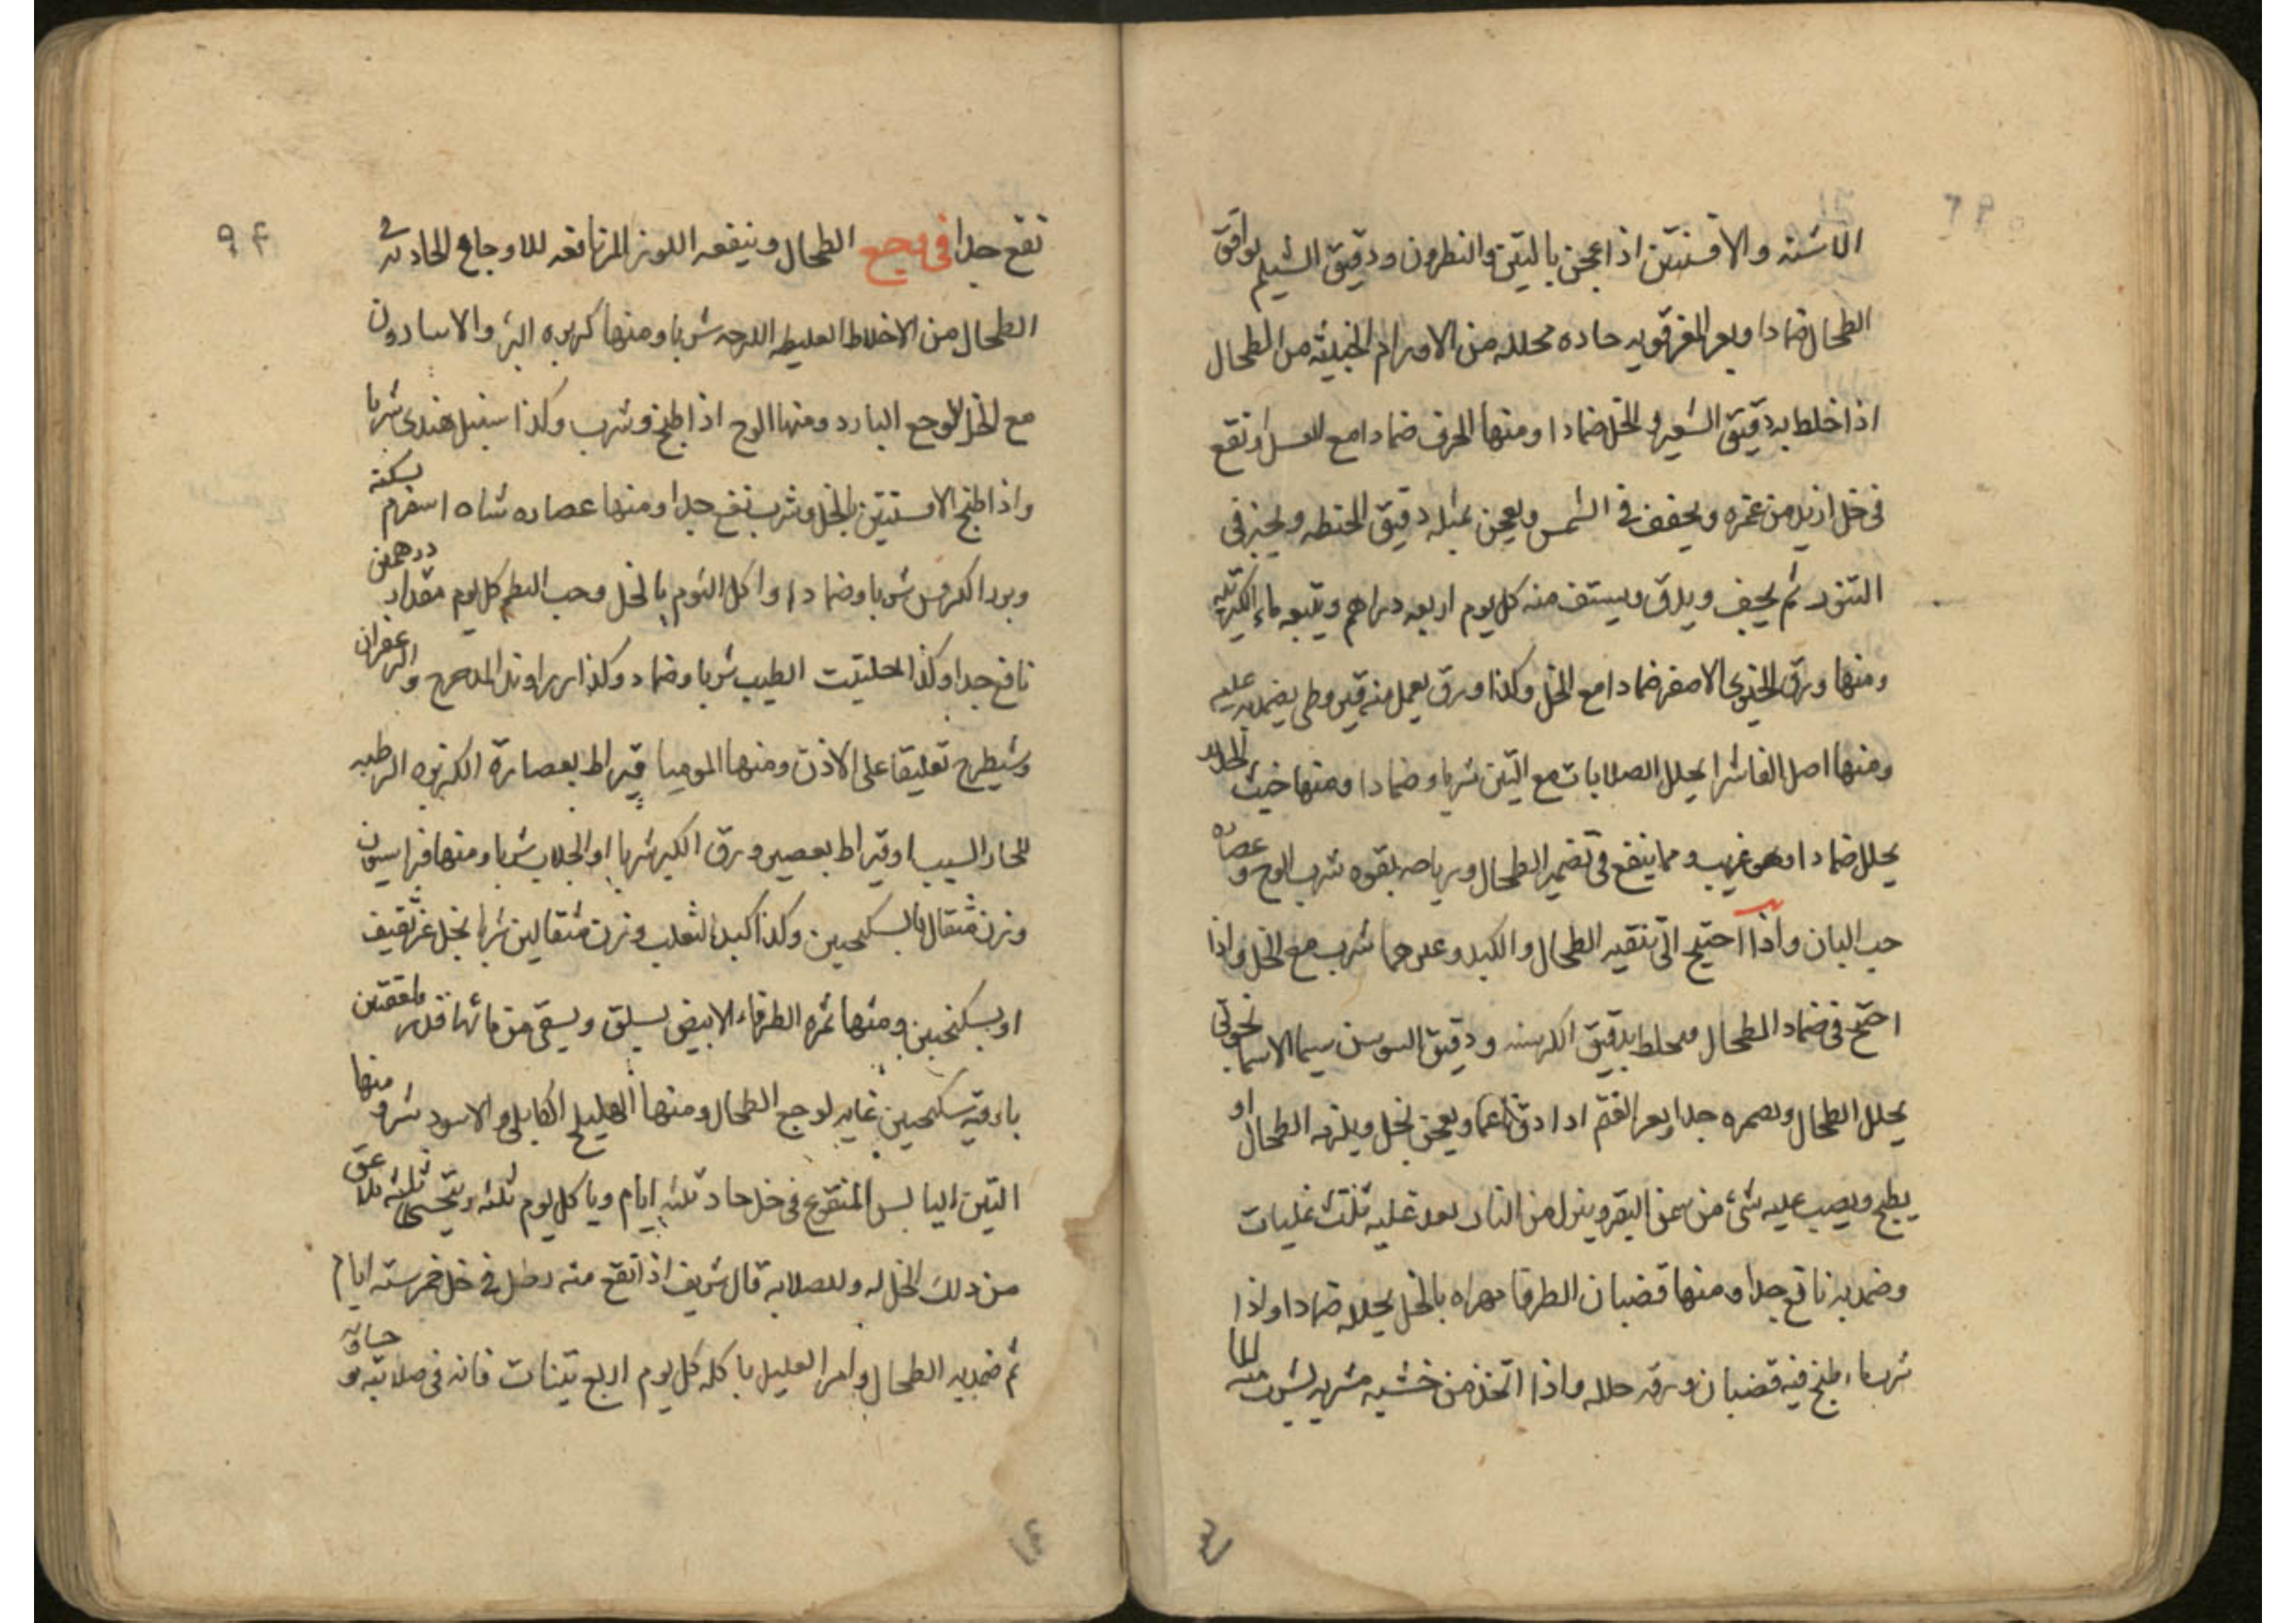 الاشنه والافسنتين اذا عجن بالتين والنطرون ودقيق الشيلم يوافق
الطحال ضمادا وبعر المعز قويه حاده محلله من الاورام الخبيثه من الطحال
اذا خلط بدقيق الشعير والخل ضمادا ومنها الحرف ضمادا مع العسل او نقع
فى خل ازيد من غمره ويجفف فى الشمس ويعجن بمثله دقيق الحنطه ويخبز فى
التنور ثم يجف ويدق ويستف منه كل يوم اربعه دراهم ويتبعه
ومنها ورق الخيرى الاصفر ضمادا مع الخل وكذا ورق يعمل منه قيروطى يضمد به عليه
ومنها اصل الفاشرا يحلل الصلابات مع التين شربا وضمادا ومنها خبث
يحلل ضمادا وهو غريب ومما ينفع فى تضمير الطحال ورياحه بقوه شرب الوج وعصاره
حب البان واذا احتيج الى تنقيه الطحال والكبد شرب مع الخل واذا
احتيج فى ضماد الطحال بدقيق الكرسنه ودقيق السوسن سيما الاسمانجونى
يحلل الطحال جدا وبعر الغنم اذا دق ناعما ويعجن بخل ويلزمه الطحال او
يطبخ ويصب عليه شئ من سمن البقر وينزل من النار بعد غليه ثلث غليات
وضمد به نافع جدا ومنها قضبان الطرفا مهراه بالخل يحلله ضمادا واذا
شرب ماء طبخ فيه قضبان ورقه حلله واذا اتخذ من خشبه مشربه يشرب منه الما
نفع جدا فى وجع الطحال وينفعه اللوز المر نافعه للاوجاع الحادثه فى
الطحال من الاخلاط الغليظه اللزجه شربا ومنها كزبره البئر والاسارون
مع الخل لوجع البارد ومنها الوج اذا طبخ وشرب وكذا سنبل هندى شربا
واذا طبخ الافسنتين بالخل وشرب نفع جدا ومنها عصاره شاه اسفرم يسكنه
وبزر الكرفس شربا وضمادا واكل الثوم بالخل وحب البطم كل يوم مقدار درهمين
نافع جدا وكذا الحلتيت الطيب شربا وضماد وكذا زراوند المدحرج والزعفران
وشيطرج تعليقا على الاذن ومنها الموميا قيراط بعصارة الكزبره الرطبه
للحار السبب او قيراط بعصير ورق الكبر شربا او الجلاب شربا ومنها فراسيون
وزن مثقال بالسكنجبين وكذا كبد الثعلب وزن مثقالين شربا بخل غير ثقيف
او بسكنجبين ومنها ثمره الطرفاء الابيض يسلق ويسقى من مائها قدر ملعقتين
باوقيه سكنجبين غايه لوجع الطحال ومنها الهليلج الكابلى والاسود شربا ومنها
التين اليابس المنقوع فى خل حاد ثلثه ايام وياكل كل يوم ثلثه ويتحسى ثلثه ملاعق
من ذلك الخل له وللصلابه قال شريف اذا نقع منه رطل فى خل خمر سته ايام
ثم ضمد به الطحال وامر العليل باكله كل يوم اربع تينات فانه فى صلابته